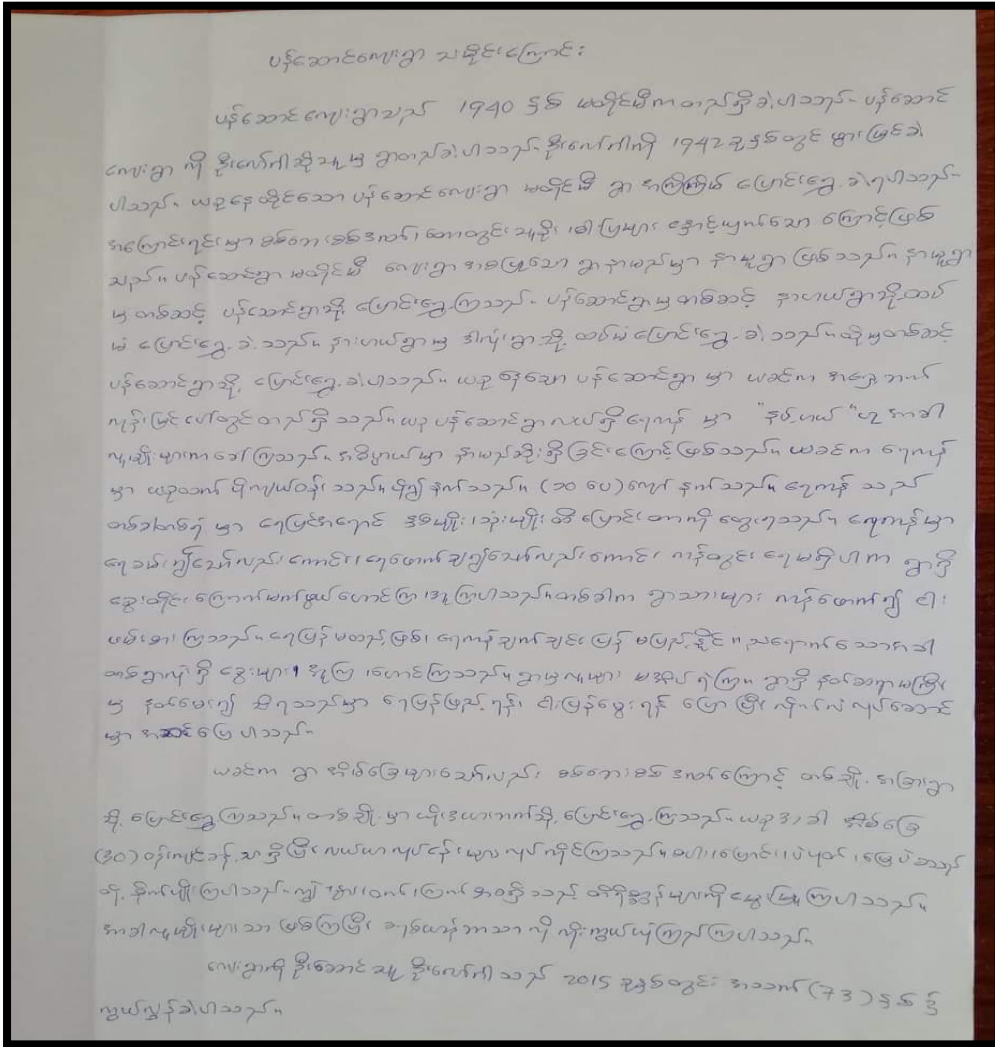 ပန်ဆောင်ကျေးရွာ သမိုင်းကြောင်း
ပန်ဆောင်ကျေးရွာသည် 1940 ခုနှစ် မတိုင်မီကတည်ရှိခဲ့ပါသည်။ ပန်ဆောင်
ကျေးရွာ ကို ဦးလော်တါဆိုသူမှ ရွာတည်ခဲ့ပါသည်။ ဦးလော်တါကို 1942 ခုနှစ်တွင် မွေးမြင်ခဲ့
ပါသည်။ ယခုနေထိုင်သော ပန်ဆောင်ကျေးရွာ မတိုင်မီ ရွာ အကြိမ်ကြိမ် ပြောင်းရွှေ့ ခဲ့ရပါသည်။
အကြောင်းရင်းမှာ စစ်ဘေးစစ်ဒဏ်၊ တောတွင်းသူခိုး၊ ဓါးပြများ နှောင့်ယှက်သော ကြောင့်ဖြစ်
သည်။ ပန်ဆောင်ရွာ မတိုင်မီ ကျေးရွာအစပြုသော ရွာနာမည်မှာ နာယူရွာ ဖြစ်သည်။ နာယူရွာ
မှတစ်ဆင့် ပန်ဆောင်ရွာသို့ ပြောင်းရွှေ့ကြသည်။ ပန်ဆောင်ရွာမှတစ်ဆင့် နာဟယ်ရွာသို့ ထပ်
မံ ပြောင်းရွှေ့ ခဲ့သည်။ နားဟယ်ရွာမှ ဒါလုံးရွာသို့ ထပ်မံပြောင်းရွှေ့ ခဲ့သည်။ ထိုမှတစ်ဆင့်
ပန်ဆောင်ရွာသို့ ပြောင်းရွှေ့ခဲ့ပါသည်။ ယခုနေသော ပန်ဆောင်ရွာ မှာ ယခင်က အရှေ့ဘက်
ကုန်းမြင့်ပေါ်တွင်တည်ရှိသည်။ ယခု ပန်ဆောင်ရွာလယ်ရှိရေကန် မှာ "နမ့်ဟယ်" ဟု အာခါ
လူမျိုးများကခေါ်ကြသည်။ အဓိပ္ပာယ်မှာ နာမည်ဆိုးရှိခြင်းကြောင့်ဖြစ်သည်။ ယခင်က ရေကန်
မှာ ယခုထက် ပိုကျယ်ဝန်းသည်။ ပို၍နက်သည်။ (၁၀ ပေ)ကျော် နက်သည်။ ရေကန် သည်
တစ်ခါတစ်ရံ မှာ ရေပြင်အရောင် နှစ်မျိုး၊ သုံးမျိုး ထိ ပြောင်းတာကို တွေ့ရသည်။ ရေကန်မှာ
ရေခမ်း၍သော်လည်းကောင်း၊ ရေဖောက်ချ၍သော်လည်းကောင်း ကန်တွင်းရေမရှိပါက ရွာရှိ
ခွေးတိုင်း ကြောက်မက်ဖွယ်ဟောင်ကြ၊ အူကြပါသည်။ တစ်ခါက ရွာသားများ ကန်ဖောက်၍ ငါး
ဖမ်းစားကြသည်။ ရေပြန်မထည့်ဖြစ်၊ ရေကန်ချက်ချင်း ပြန် မပြည့်နိုင်၊ ညရောက်သောအခါ
တစ်ရွာလုံးရှိ ခွေးများ အူကြ၊ ဟောင်ကြသည်။ ရွာမှလူများ မအိပ်ရဲကြ။ ရွာရှိ နတ်ဆရာမကြီး
မှ နတ်မေး၍ သိရသည်မှာ ရေပြန်ဖြည့်ရန်၊ ငါးပြန်မွေးရန် ပြောပြီး လိုက်လံလုပ်ဆောင်
မှာ အဆင်ပြေပါသည်။
ယခင်က ရွာအိမ်ခြေများသော်လည်း စစ်ဘေးစစ်ဒဏ်ကြောင့် တစ်ချို့ အခြားရွာ
သို့ ပြောင်းရွှေ့ကြသည်။ တစ်ချို့မှာ ယိုးဒယားဘက်သို့ ပြောင်းရွှေ့ကြသည်။ ယခုအခါ အိမ်ခြေ
(၃၀) ဝန်းကျင်ခန့်သာရှိပြီး လယ်ယာလုပ်ငန်းများ လုပ်ကိုင်ကြသည်။ စပါး၊ ပြောင်း၊ ပဲပုတ်၊ မြေပဲစသည်
တို့ စိုက်ပျိုးကြပါသည်။ ကျွဲ၊ နွား၊ ဝက်၊ ကြက် အစရှိသည့် တိရိစ္ဆာန်များကို မွေးမြူကြပါသည်။
အာခါလူမျိုးများသာ ဖြစ်ကြပြီး ခရစ်ယာန်ဘာသာ ကို ကိုးကွယ်ယုံကြည်ကြပါသည်။
ကျေးရွာကို ဦးဆောင်သူ ဦးလော်တါ သည် 2015 ခုနှစ်တွင် အသက် (73) နှစ် ၌
ကွယ်လွန်ခဲ့ပါသည်။